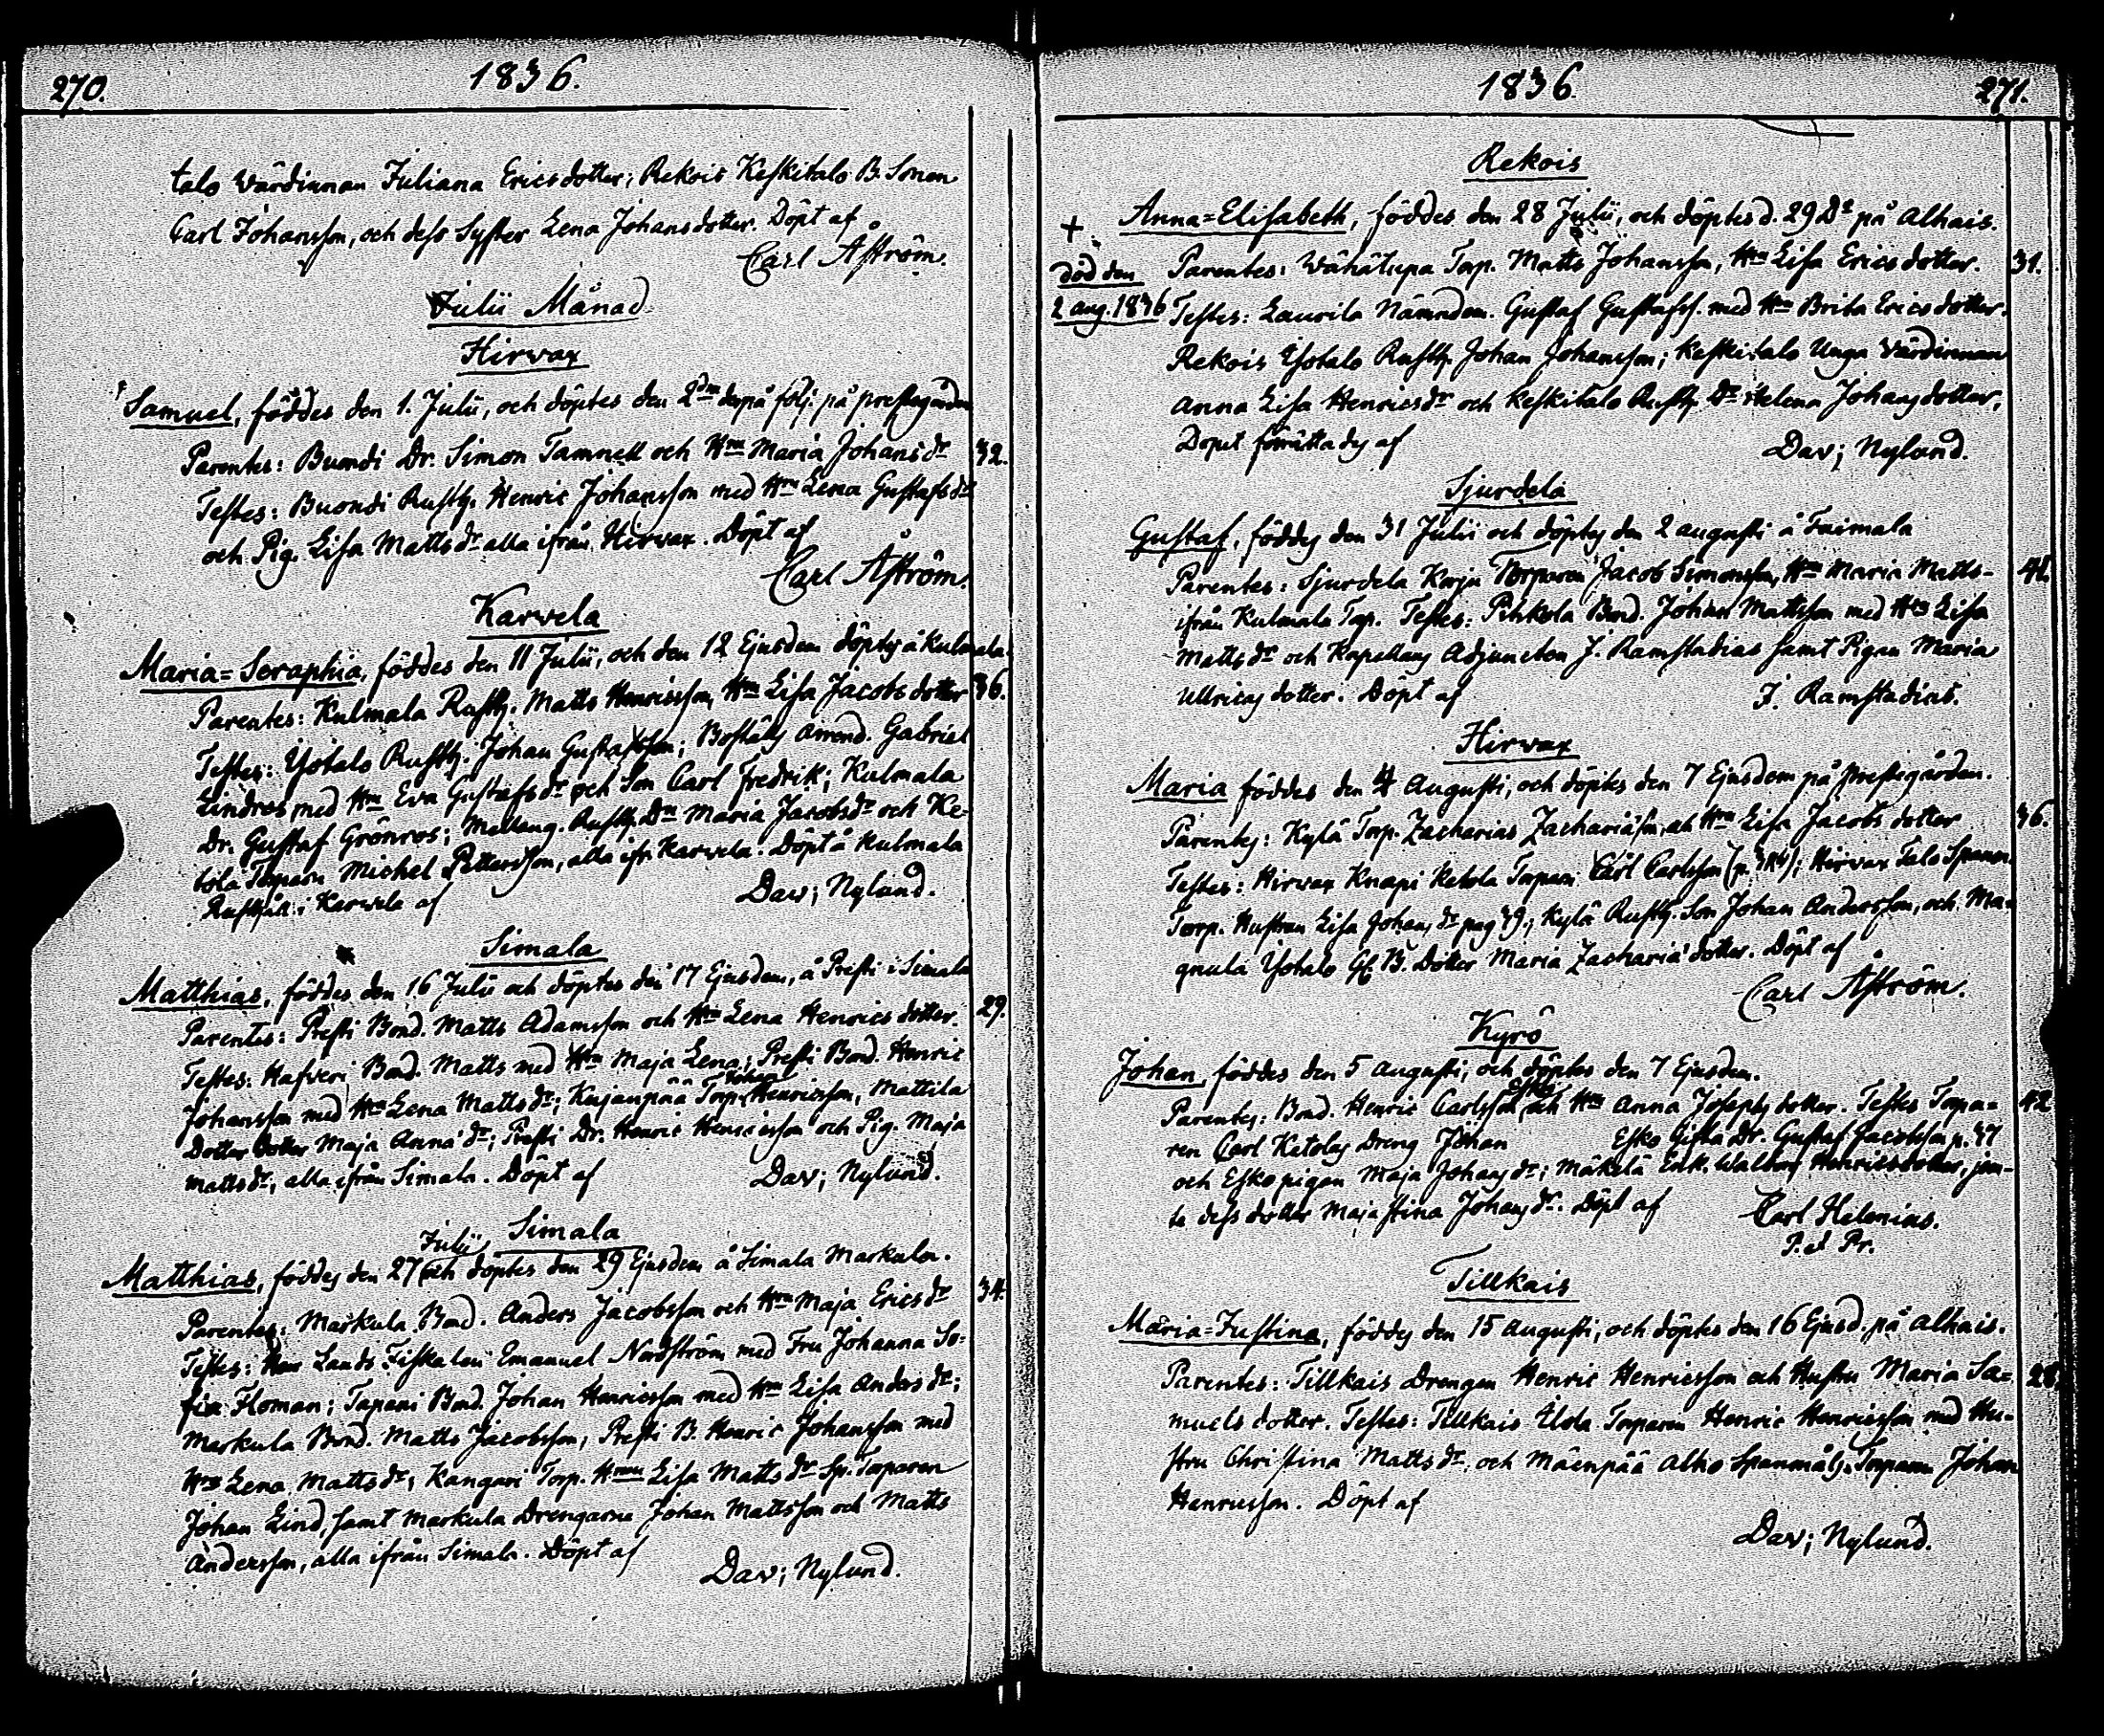 270.
1836.
talo Wärdinnan Juliana Ericsdotter; Rekois Keskitalo B. Sonen
Carl Johansson, och dess Syster Lena Johansdotter. Döpt af
Carl Åström.
Julii Månad
Hirwax
Samuel, föddes den 1. Julii, och döptes den 2dra derpå följ. på prestegården
Parentes: Buondi Dr. Simon Tamnell och Hru Maria Johansdr 32.
Testes: Buondi Rusth. Henric Johansson med Hru Lena Gustafsdr
och Pig. Lisa Mattsdr alla ifrån Hirwax. Döpt af
Carl Åström.
Karwela
Maria=Seraphia, föddes den 11 Julii, och den 12 Ejusdem döptes å Kulmala.
Parentes: Kulmala Rusth. Matts Henricsson, Hru Lisa Jacobsdotter 36.
Testes: Yotalo Rusth. Johan Gustafsson; Boställs Arrend. Gabriel
Lindros med Hru Eva Gustafsdr och Son Carl Fredrik; Kulmala
Dr. Gustaf Grönros; Mellang. Rusth. Dr Maria Jacobsdr och Ke-
tola Torparn Michel Pettersson, alla ifr. Karwela. Döpt å Kulmala
Rusthåll i Karwela af
Dav; Nylund.
Simala
Matthias, föddes den 16 Julii och döptes den 17 Ejusdem, å Presti i Simala
Parentes: Presti Bond. Matts Adamsson och Hru Lena Henricsdotter. 29.
Testes: Hafveri Bond. Matts med Hru Maja Lena; Presti Bond. Henric
Johansson med Hru Lena Mattsdr; Kujanpää Torp. Johan Henricsson, Mattila
Dotter Dotter Maja Anna dr; Presti Dr. Henric Henricsson och Pig. Maja
Mattsdr, alla ifrån Simala. Döpt af
Dav; Nylund.
Simala
Matthias, föddes den 27 Julii och döptes den 29 Ejusdem å Simala Markula.
Parentes: Markula Bond. Anders Jacobsson och Hru Maja Ericsdr 34.
Testes: Lands Fiskalen Emanuel Nordström med Fru Johanna So-
fia Floman; Tapani Bond. Johan Henricsson med Hru Lisa Andersdr;
Markula Bond. Matts Jacobsson, Presti B. Henric Johansson med
Hru Lena Mattsdr; Kangari Torp. Hru Lisa Mattsdr Sp. Torparen
Johan Lind, samt Markula Drengarne Johan Mattsson och Matts
Andersson, alla ifrån Simala. Döpt af
Dav; Nylund.
1836
271.
Rekois
Anna=Elisabeth, föddes den 28 Julii, och döptes d. 29 Do på Alhais.
+ död den 2 aug. 1836
Parentes: Wähätupa Torp. Matts Johansson, Hru Lisa Ericsdotter. 31.
Testes: Laurila Nämndem. Gustaf Gustafss. med Hru Brita Ericsdotter.
Rekois Yotalo Rusth. Johan Johansson; Keskitalo Unga Wärdinnan
Anna Lisa Henricsdr och Keskitalo Rusth. Dr Helena Johansdotter,
Dopet förrättades af
Dav; Nylund.
Sjurdela
Gustaf, föddes den 31 Julii och döptes den 2 augusti å Faimala
Parentes: Sjurdela Korju Torparen Jacob Simonsson, Hru Maria Matts- 41.
ifrån Kulmala Torp. Testes: Pihkola Bond. Johan Mattsson med Hru Lisa
Mattsdr och Kapellans Adjuncten J. Ramstadius samt Pigan Maria
Ullricasdotter. Döpt af
J. Ramstadius.
Hirwax
Maria föddes den 4 Augusti, och döptes den 7 Ejusdem på Prestegården.
Parentes: Kylä Torp. Zacharias Zachariäson, och Hru Lisa Jacobsdotter 36.
Testes: Hirwax Knapi Ketola Torparn Carl Carlsson; Hirwax Talo Spanm.
Torp. Hustrun Lisa Johansdr pag 49.; Kylä Rusth. Son Johan Andersson, och Ma-
gnula Yotalo B. Dotter Maria Zachariädotter. Döpt af
Carl Åström.
Kyrö
Johan, föddes den 5 augusti, och döptes den 7 Ejusdem.
Parentes: Bond. Henric Carlsson Esko och Hru Anna Josephsdotter. Testes Torpa- 42
ren Carl Ketolas dreng Johan Esko Gifta Dr. Gustaf Jacobsson p. 47
och Eskopigan Maja Johansdr; Mäkelä Enk. Walborg Henricsdotter, jem-
te dess dotter Maja Stina Johansdr. Döpt af
Carl Helenius.
P. et Pr.
Tillkais
Maria=Justina, föddes den 15 Augusti, och döptes den 16 Ejusd. på Alhais.
Parentes: Tillkais Drengen Henric Henricsson och Hustru Maria Sa- 28.
muelsdotter. Testes: Tillkais Ulola Torparen Henric Henricsson med Hu-
stru Christina Mattsdr, och Mäenpää Alho Spanmåls Torparen Johan
Henricsson. Döpt af
Dav; Nylund.